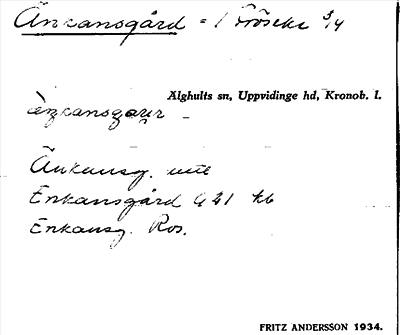 Änkansgård = 1 Bröseke 3/4
Älghults sn, Uppvidinge hd, Kronob. l.
Änkansg. uttl
Enkansgård G 21 kb
Enkansg. Ros.
FRITZ ANDERSSON 1934.